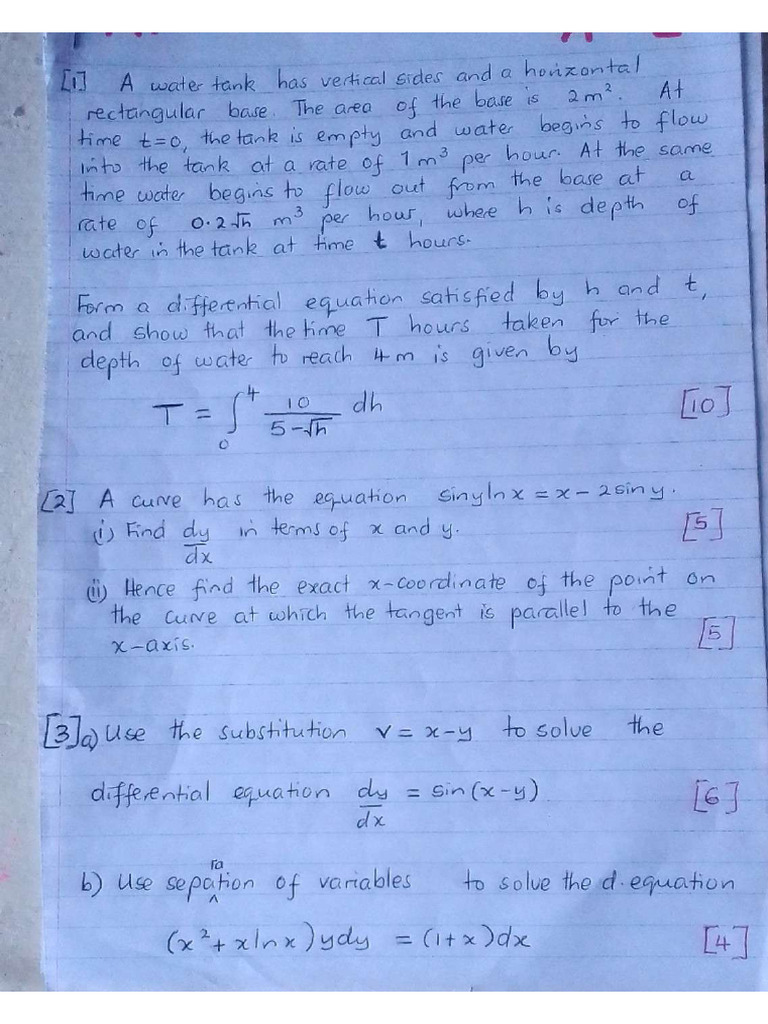 [1] A water tank has vertical sides and a horizontal
rectangular base. The area of the base is 2m². At
time t=0, the tank is empty and water begins to flow
into the tank at a rate of 1m³ per hour. At the same
time water begins to flow out from the base at a
rate of 0.2√h m³ per hour, where h is depth of
water in the tank at time t hours.
Form a differential equation satisfied by h and t,
and show that the time T hours taken for the
depth of water to reach 4m is given by
T = ∫₀⁴ 10/(5-√h) dh [10]
[2] A curve has the equation siny lnx = x - 2siny.
(i) Find dy/dx in terms of x and y. [5]
(ii) Hence find the exact x-coordinate of the point on
the curve at which the tangent is parallel to the
x-axis. [5]
[3]a) Use the substitution v = x-y to solve the
differential equation dy/dx = sin(x-y) [6]
b) Use separation of variables to solve the d.equation
(x² + xlnx)ydy = (1+x)dx [4]